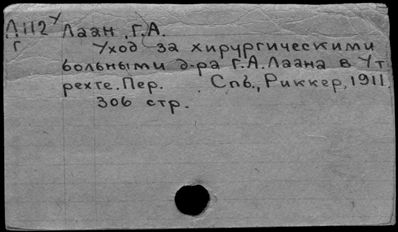 Л112у Лаан, Г.А.
Г Уход за хирургическими
больными д-ра Г.А.Лаана в Ут
рехте. Пер. Спб., Риккер, 1911.
306 стр.